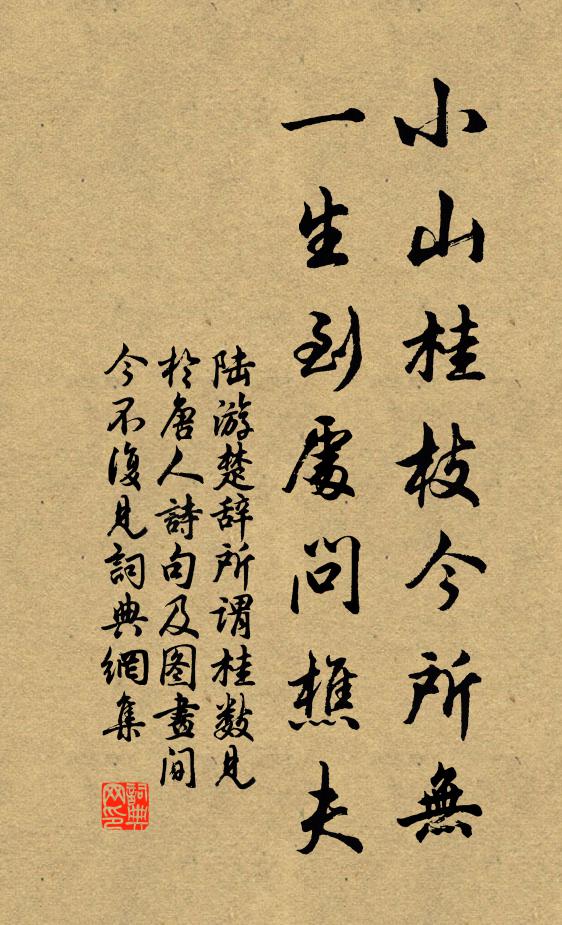 小山桂枝今所無
一生到處問樵夫
陆游楚辞所谓桂数见
於唐人詩句及图畫间
今不復見詞典網集
詞典
网印